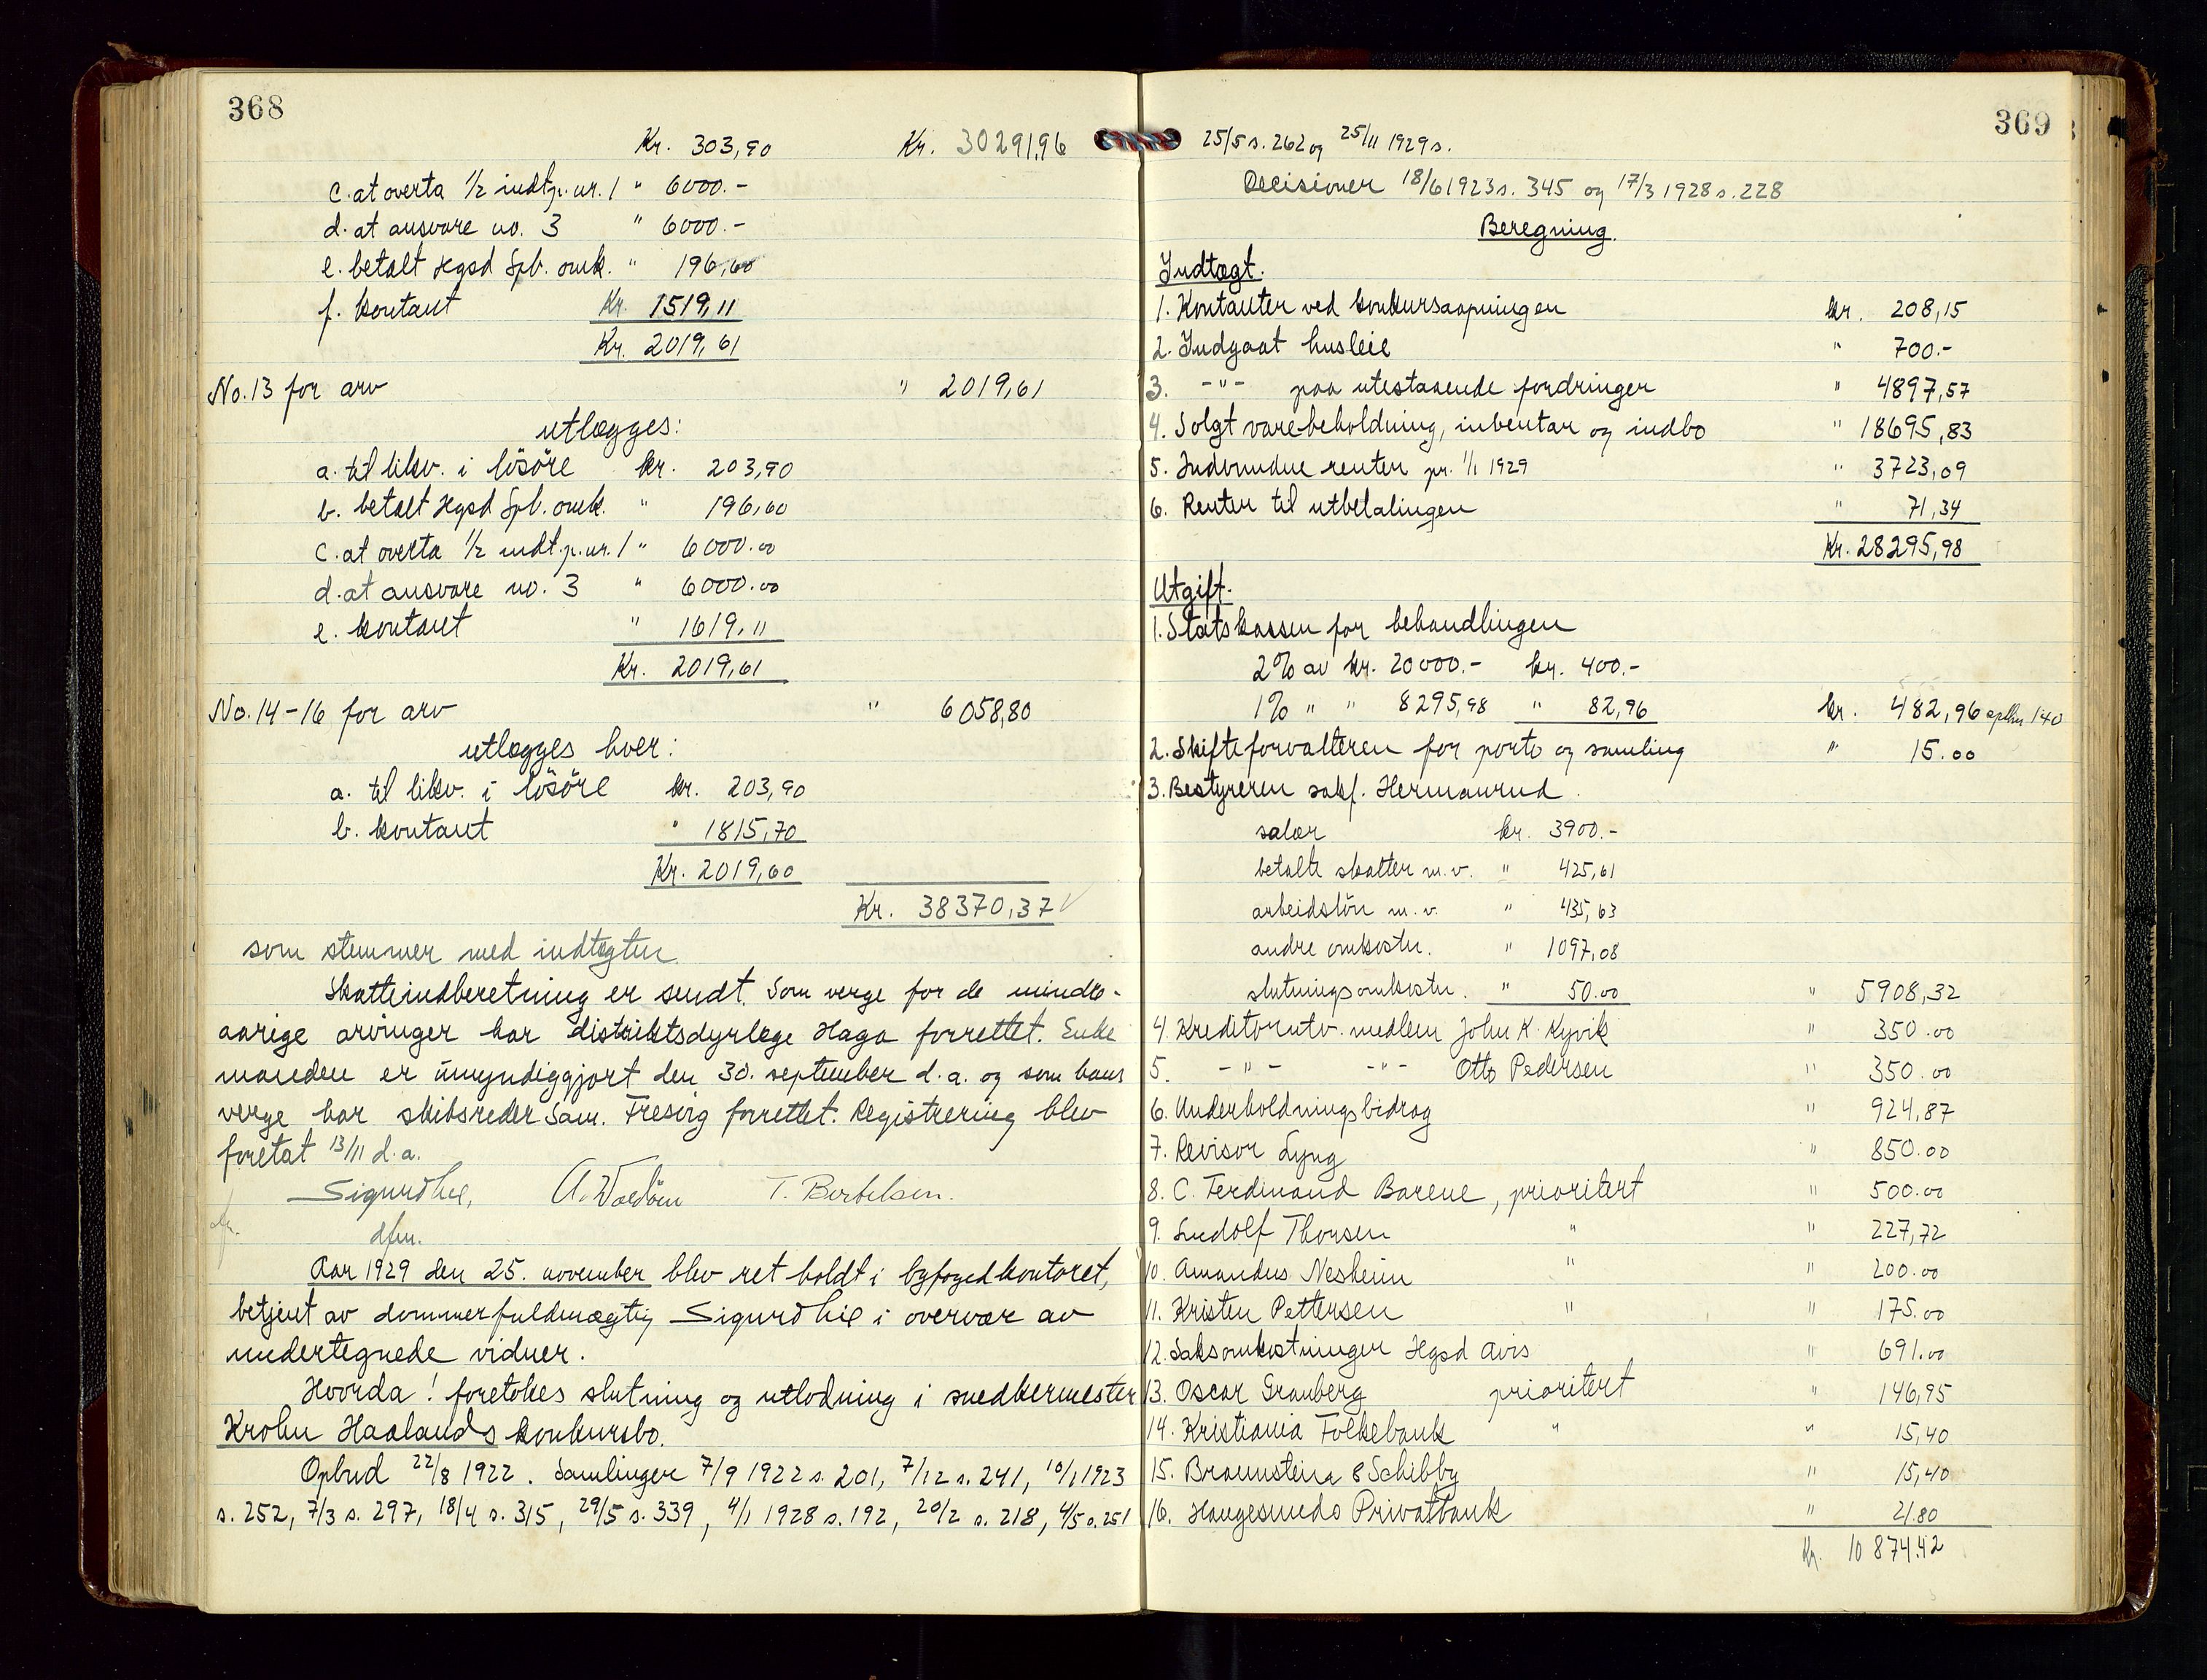 368
Kr. 303,90 Kr. 30291,96
c. at overta 1/2 indt.p.nr. 1 " 6000.-
d. at ansvare no. 3 " 6000.-
e. betalt Hgsd Spb. omk. " 196,60
f. kontant Kr. 1519,11
Kr. 2019,61
No. 13 for arv " 2019,61
utlægges:
a. til likv. i lösöre kr. 203,90
b. betalt Hgsd Spb. omk. " 196,60
c. at overta 1/2 indt.p.nr. 1 " 6000.00
d. at ansvare no. 3 " 6000.00
e. kontant " 1619,11
Kr. 2019,61
No. 14-16 for arv " 6058,80
utlægges hver:
a. til likv. i lösöre kr. 203,90
b. kontant " 1815,70
Kr. 2019,60
Kr. 38370,37
som stemmer med indtægten.
Skatteindberetning er sendt. Som verge for de mindre-
aarige arvinger har distriktsdyrlæge Haga forrettet. Enke
manden er umyndiggjort den 30. september d.a. og som hans
verge har skibsreder Sam. Tresvig forrettet. Registrering blev
foretat 13/11 d.a.
Sigurd Lie, T. Bertelsen.
dfm.
Aar 1929 den 25. november blev ret holdt i byfogedkontoret,
betjent av dommerfuldmægtig Sigurd Lie i overvær av
undertegnede vidner.
Hvorda! foretokes slutning og utlodning i snedkermester
Krohn Haalands konkursbo.
Opbud 22/8 1922. Samlinger 7/9 1922 s. 201, 7/12 s. 241, 10/1 1923
s. 252, 7/3 s. 297, 18/4 s. 315, 29/5 s. 339, 4/1 1928 s. 192, 20/2 s. 218, 4/5 s. 251
369
25/5 s. 262 og 25/11 1929 s.
Decisioner 18/6 1923 s. 345 og 17/3 1928 s. 228
Beregning.
Indtægt.
1. Kontanter ved konkursaapningen kr. 208,15
2. Indgaat husleie " 700.-
3. -"- paa utestaaende fordringer " 4897,57
4. Solgt varebeholdning, inventar og indbo " 18695,83
5. Indvundne renter pr. 1/1 1929 " 3723,09
6. Renter til utbetalingen " 71,34
Kr. 28295,98
Utgift.
1. Statskassen for behandlingen
2% av kr. 20000.- kr. 400.-
1% " " 8295,98 " 82,96 kr. 482,96 140
2. Skifteforvalteren for porto og samling " 15.00
3. Bestyreren sakf. Hermanrud.
salær kr. 3900.-
betalte skatter m.v. " 425,61
arbeidslön m.v. " 435,63
andre omkostn. " 1097,08
slutningsomkostn. " 50.00 " 5908,32
4. Kreditorutv. medlem John K. Kyvik " 350.00
5. -"- -"- Otto Pedersen " 350.00
6. Underholdningsbidrag " 924,87
7. Revisor Lyng " 850.00
8. C. Ferdinand Barene, prioritert " 500.00
9. Ludolf Thorsen " " 227,72
10. Amandus Nesheim " " 200.00
11. Kristen Pettersen " " 175.00
12. Saksomkostninger Hgsd Avis " 691.00
13. Oscar Granberg prioritert " 146,95
14. Kristiania Folkebank " " 15,40
15. Braunstein & Schibby " 15,40
16. Haugesunds Privatbank " 21.80
Kr. 10874.42